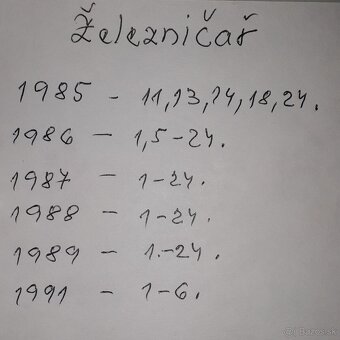 Železničař
1985 - 11,13,14,18,24.
1986 - 1,5-24.
1987 - 1-24.
1988 - 1-24.
1989 - 1.-24.
1991 - 1-6.